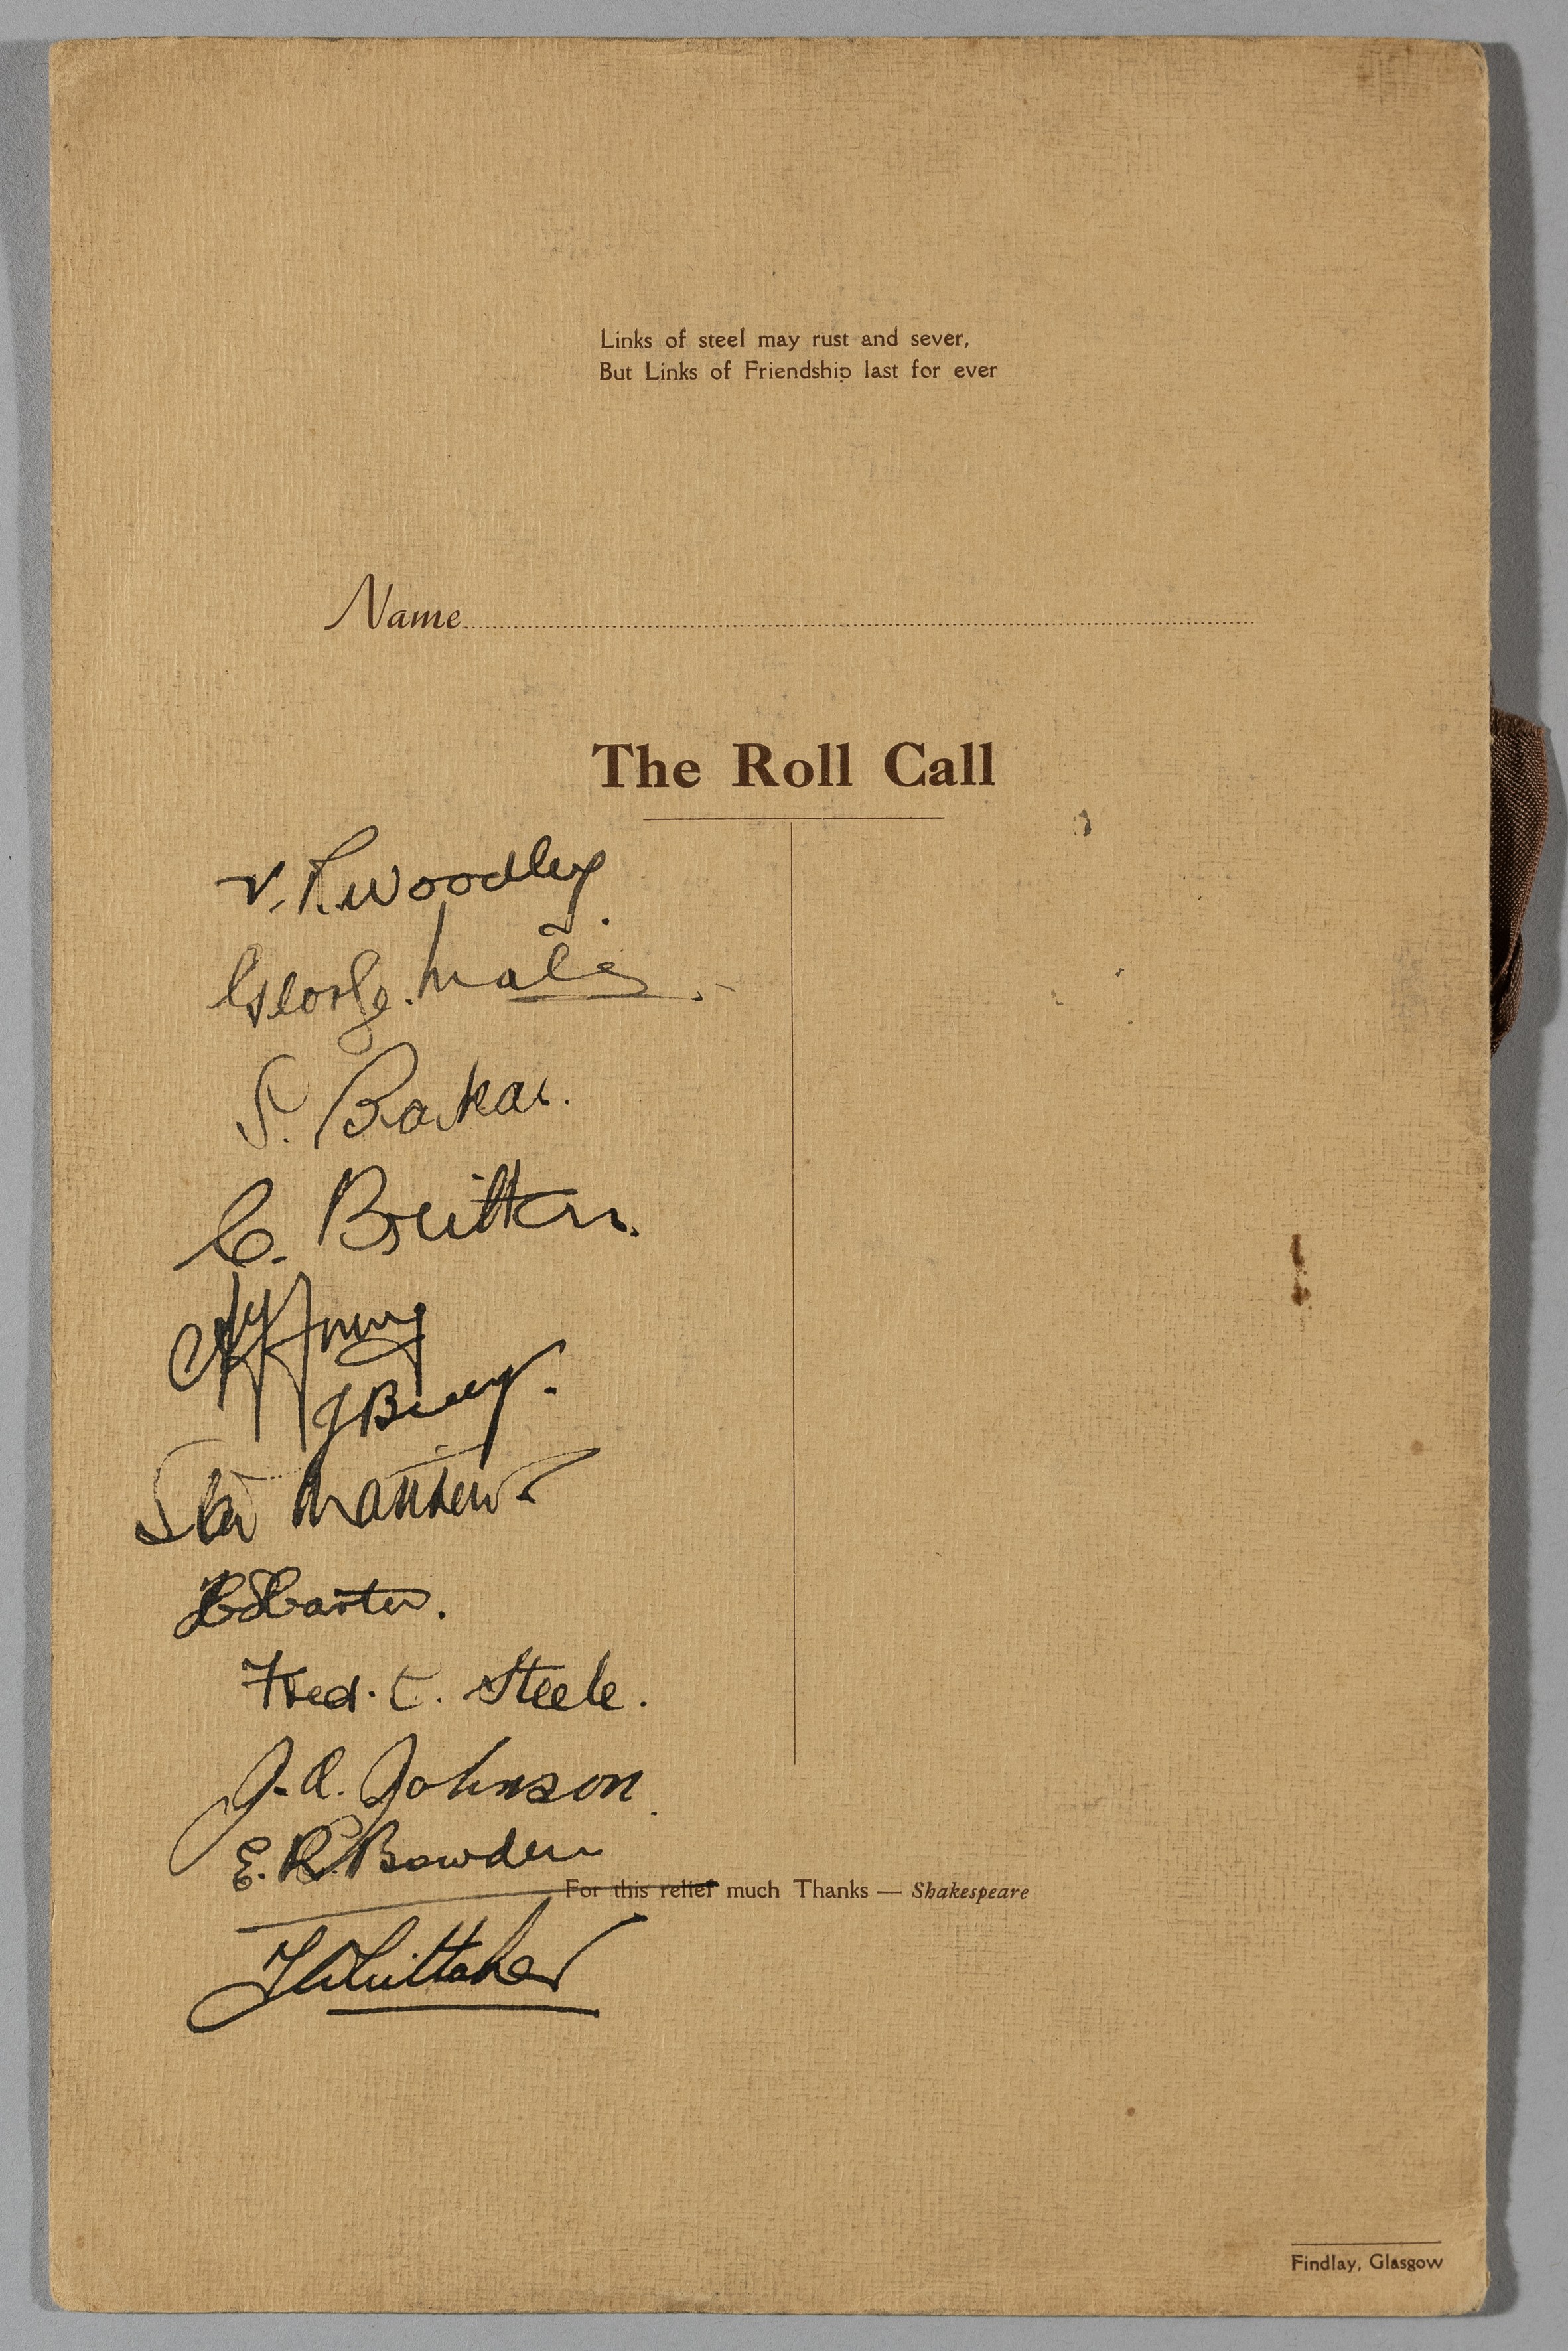 Links of steel may rust and sever,
But Links of Friendship last for ever
Name
The Roll Call
V. R. Woodley.
George Male.
S. Barkas.
C. Britton.
A Young
J Barry.
Stan Matthews
H S Carter.
Fred. C. Steele.
J. A. Johnson.
E. R. Bowden
For this relief much Thanks — Shakespeare
T Whittaker
Findlay, Glasgow